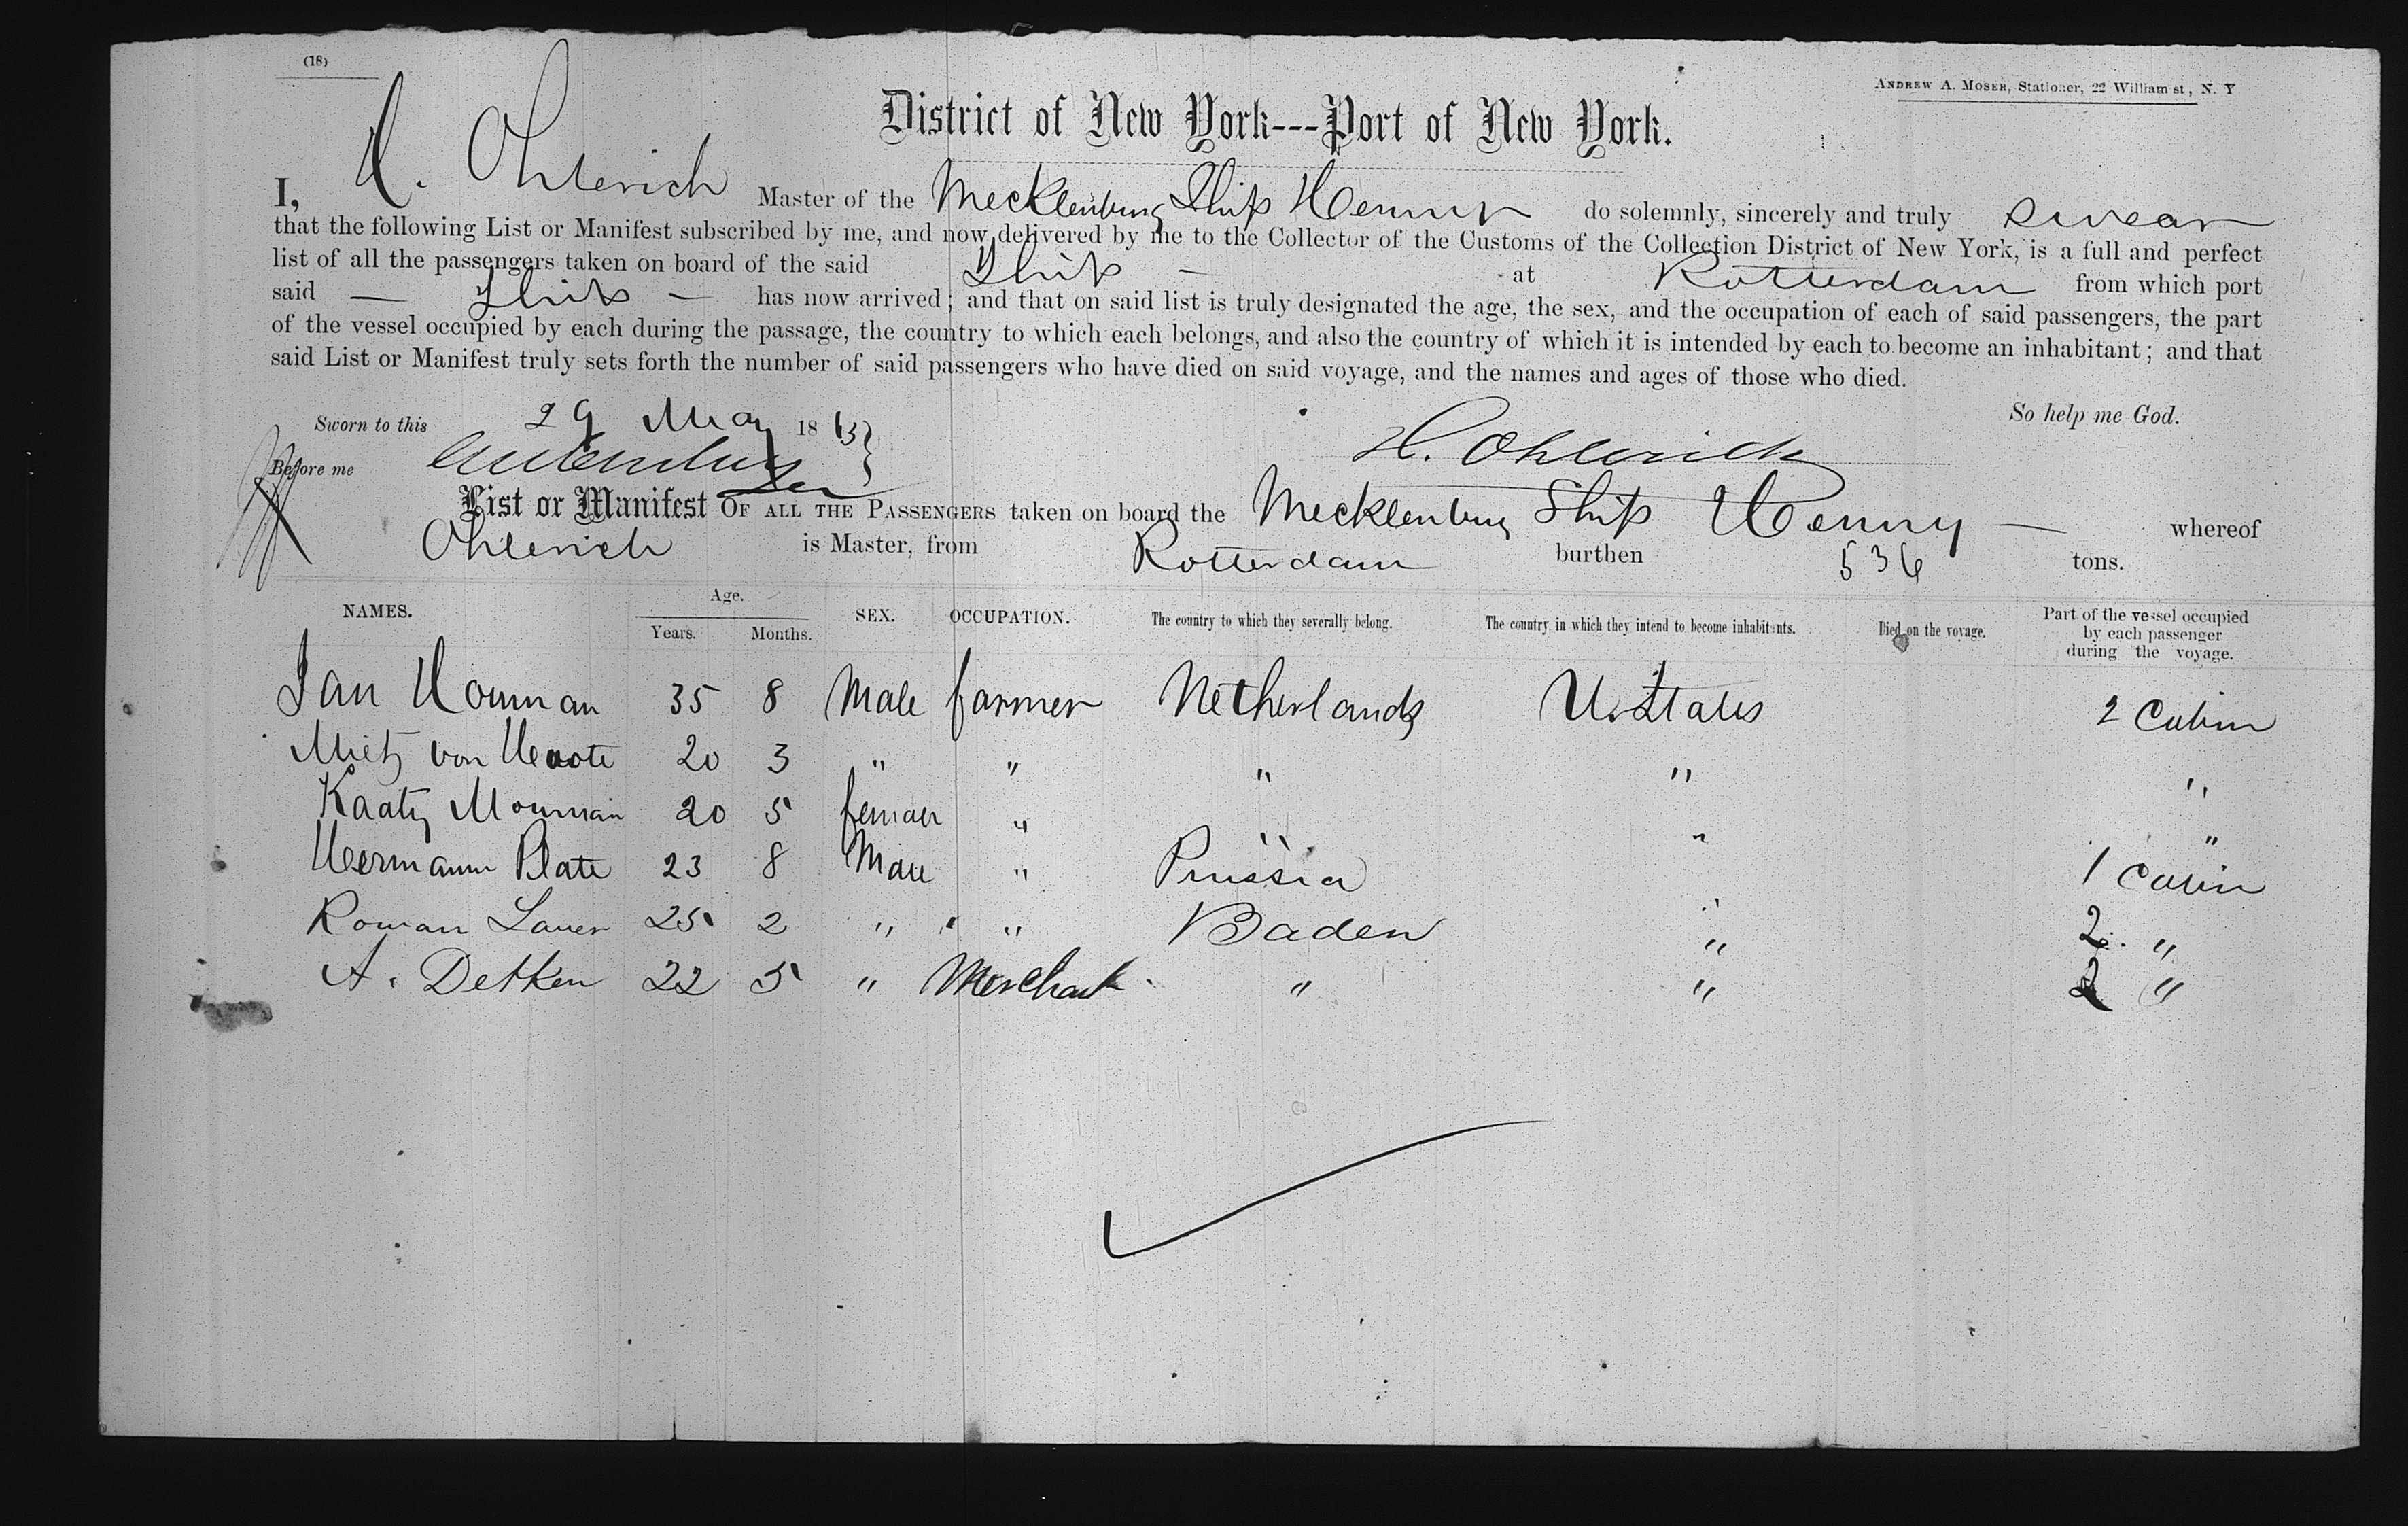 (18)
ANDREW A. MOSER, Stationer, 22 William st, N. Y
District of New York---Port of New York.
I, H. Ohlerich Master of the Mecklenburg Ship Henny do solemnly, sincerely and truly swear
that the following List or Manifest subscribed by me, and now delivered by me to the Collector of the Customs of the Collection District of New York, is a full and perfect
list of all the passengers taken on board of the said Ship - at Rotterdam from which port
said — Ship — has now arrived; and that on said list is truly designated the age, the sex, and the occupation of each of said passengers, the part
of the vessel occupied by each during the passage, the country to which each belongs, and also the country of which it is intended by each to become an inhabitant; and that
said List or Manifest truly sets forth the number of said passengers who have died on said voyage, and the names and ages of those who died.
So help me God.
Sworn to this 29 May 1863
H. Ohlerich
Before me
List or Manifest OF ALL THE PASSENGERS taken on board the Mecklenburg Ship Henny — whereof
Ohlerich is Master, from Rotterdam burthen 536 tons.
NAMES. Age. Years. Months. SEX. OCCUPATION. The country to which they severally belong. The country in which they intend to become inhabitants. Died on the voyage. Part of the vessel occupied by each passenger during the voyage.
Jan Houman 35 8 Male farmer Netherlands U. States 2 Cabin
Mietz von Hoote 20 3 " " " " "
Kaatz Mouman 20 5 female " " " "
Hermann Plate 23 8 Male " Prussia 1 Cabin
Roman Lauer 25 2 " " Baden " 2 "
A. Detken 22 5 " Merchant " " 2 "